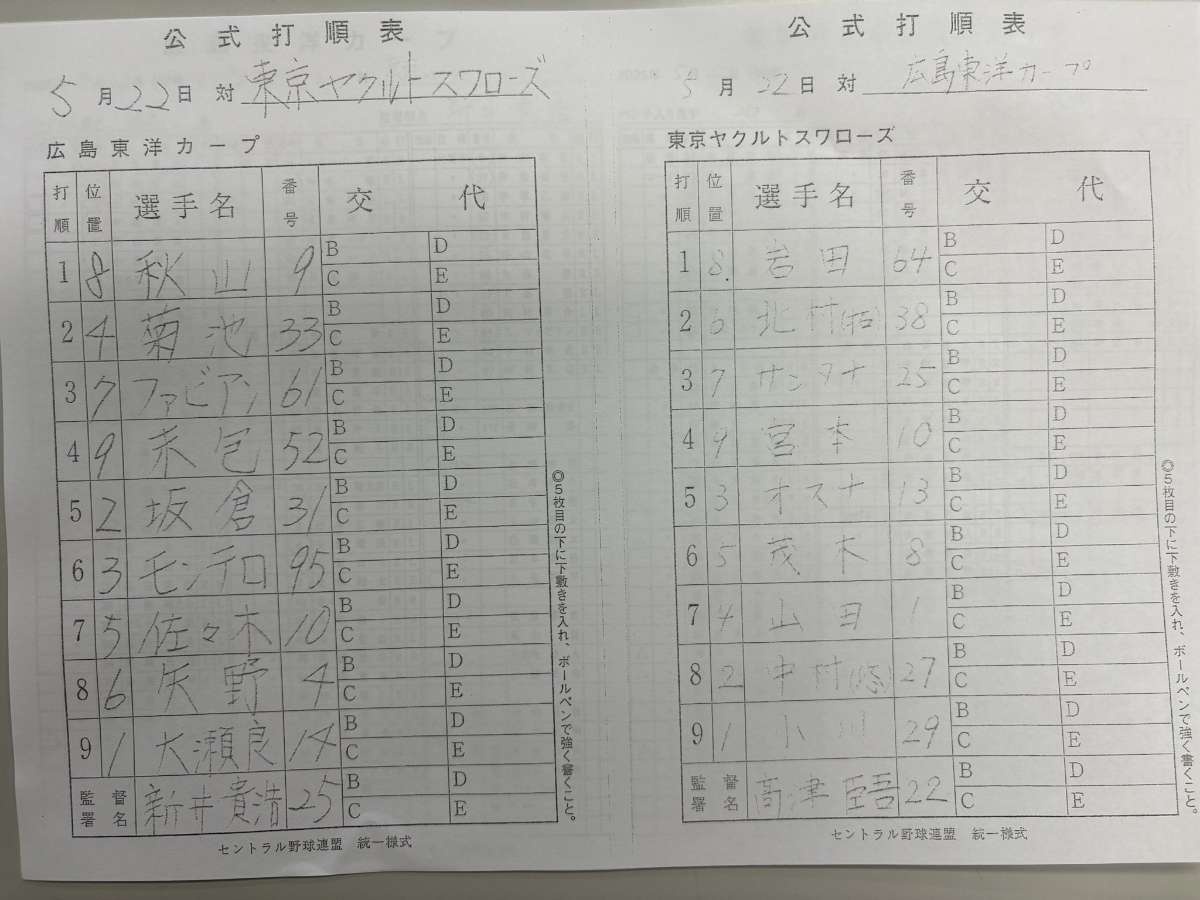 公式打順表
5月22日 対 東京ヤクルトスワローズ
広島東洋カープ
打順 位置 選手名 番号 交代
1 8 秋山 9 B D C E
2 4 菊池 33 B D C E
3 7 ファビアン 61 B D C E
4 9 末包 52 B D C E
5 2 坂倉 31 B D C E
6 3 モンテロ 95 B D C E
7 5 佐々木 10 B D C E
8 6 矢野 4 B D C E
9 1 大瀬良 14 B D C E
監督署名 新井貴浩 25 B D C E
◎5枚目の下に下敷きを入れ、ボールペンで強く書くこと。
セントラル野球連盟 統一様式
公式打順表
5月22日 対 広島東洋カープ
東京ヤクルトスワローズ
打順 位置 選手名 番号 交代
1 8 岩田 64 B D C E
2 6 北村(拓) 38 B D C E
3 7 サンタナ 25 B D C E
4 9 宮本 10 B D C E
5 3 オスナ 13 B D C E
6 5 茂木 8 B D C E
7 4 山田 1 B D C E
8 2 中村(悠) 27 B D C E
9 1 小川 29 B D C E
監督署名 高津臣吾 22 B D C E
◎5枚目の下に下敷きを入れ、ボールペンで強く書くこと。
セントラル野球連盟 統一様式